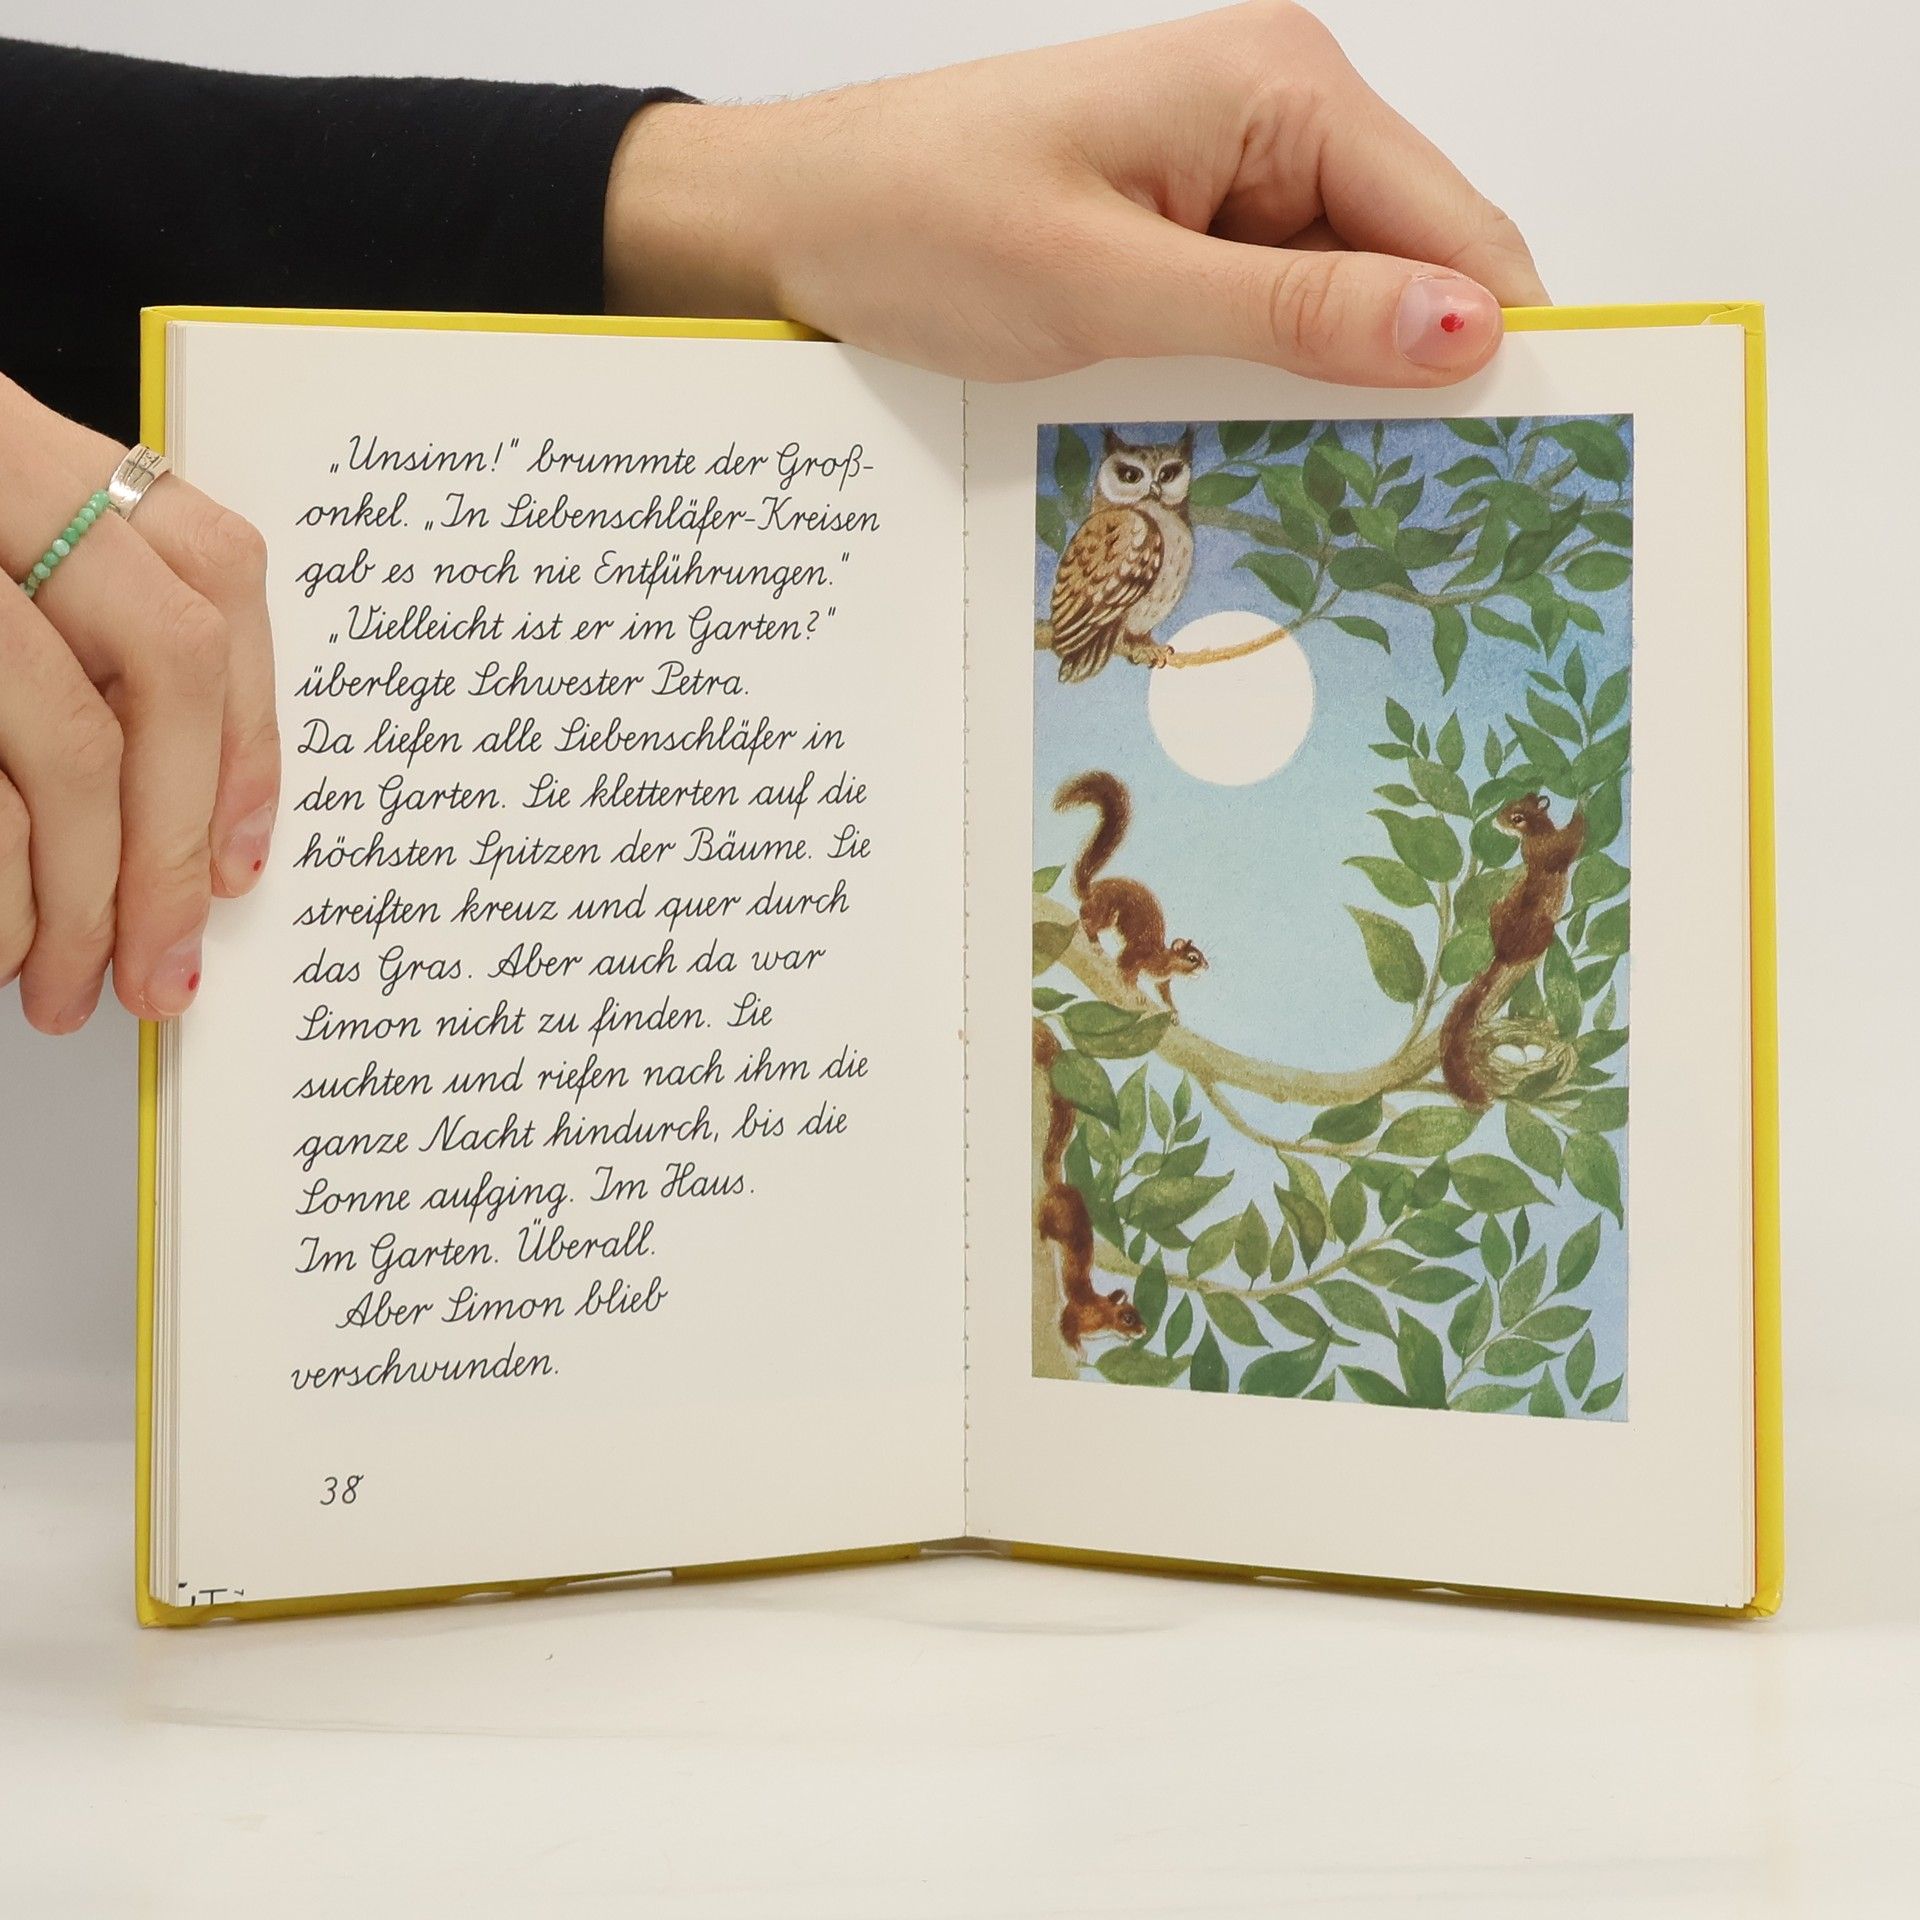 „Unsinn!" brummte der Groß-
onkel. „In Siebenschläfer-Kreisen
gab es noch nie Entführungen."
„Vielleicht ist er im Garten?"
überlegte Schwester Petra.
Da liefen alle Siebenschläfer in
den Garten. Sie kletterten auf die
höchsten Spitzen der Bäume. Sie
streiften kreuz und quer durch
das Gras. Aber auch da war
Simon nicht zu finden. Sie
suchten und riefen nach ihm die
ganze Nacht hindurch, bis die
Sonne aufging. Im Haus.
Im Garten. Überall.
Aber Simon blieb
verschwunden.
38